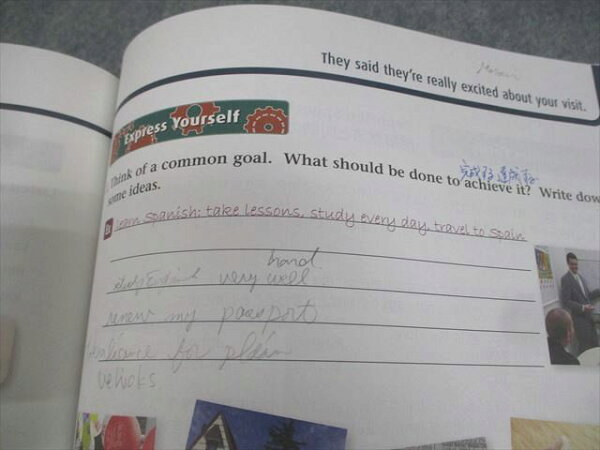 They said they're really excited about your visit.
Express Yourself
Think of a common goal. What should be done to achieve it? Write dow
some ideas.
learn Spanish: take lessons, study every day, travel to Spain
hard
study English very well
renew my passport
for